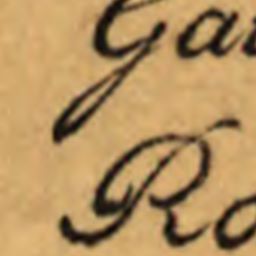 Ga
Ro